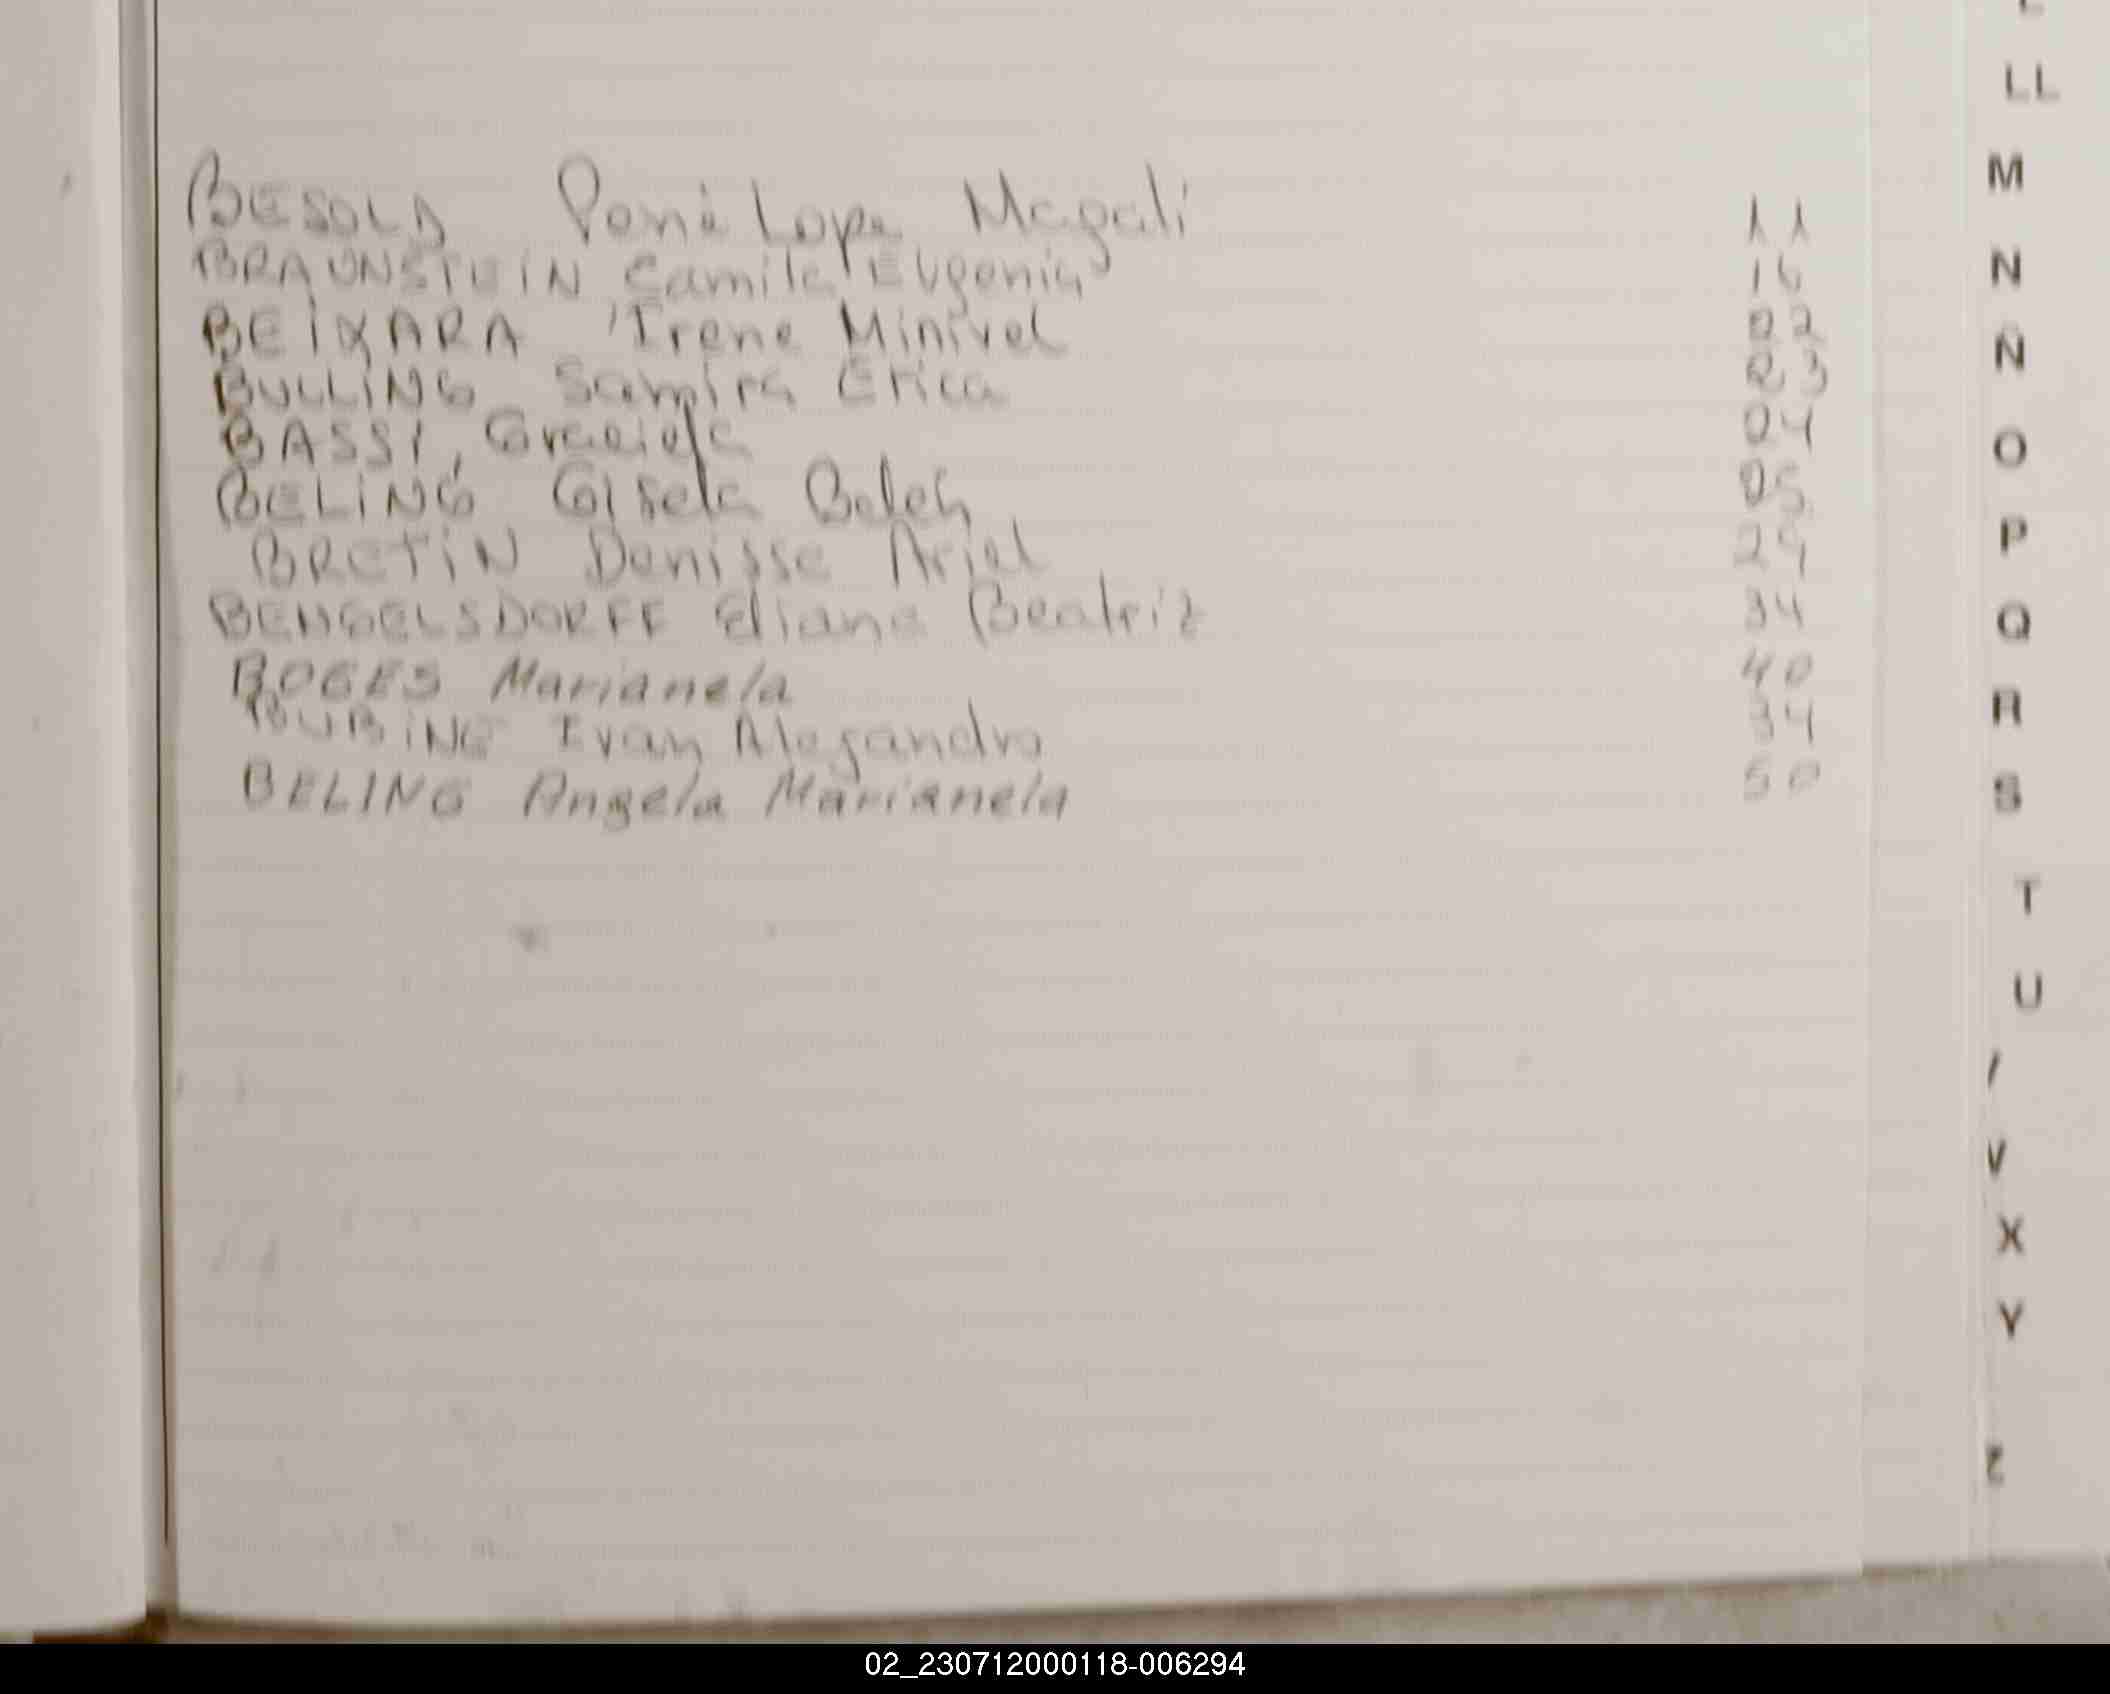 LL
M
N
Ñ
O
P
Q
R
S
T
U
V
X
Y
Z
BESOLD Penélope Magali 11
BRAUNSTEIN Camila Eugenia 16
BEIXARA Irene Minivel 22
BULLING Samira Erica 23
BASSI, Graciela 24
BELING Gisela Belén 25
BRETIN Denisse Ariel 29
BENGELSDORFF Eliana Beatriz 34
BOGES Marianela 40
BUBING Ivan Alejandro 34
BELING Angela Marianela 50
02_230712000118-006294